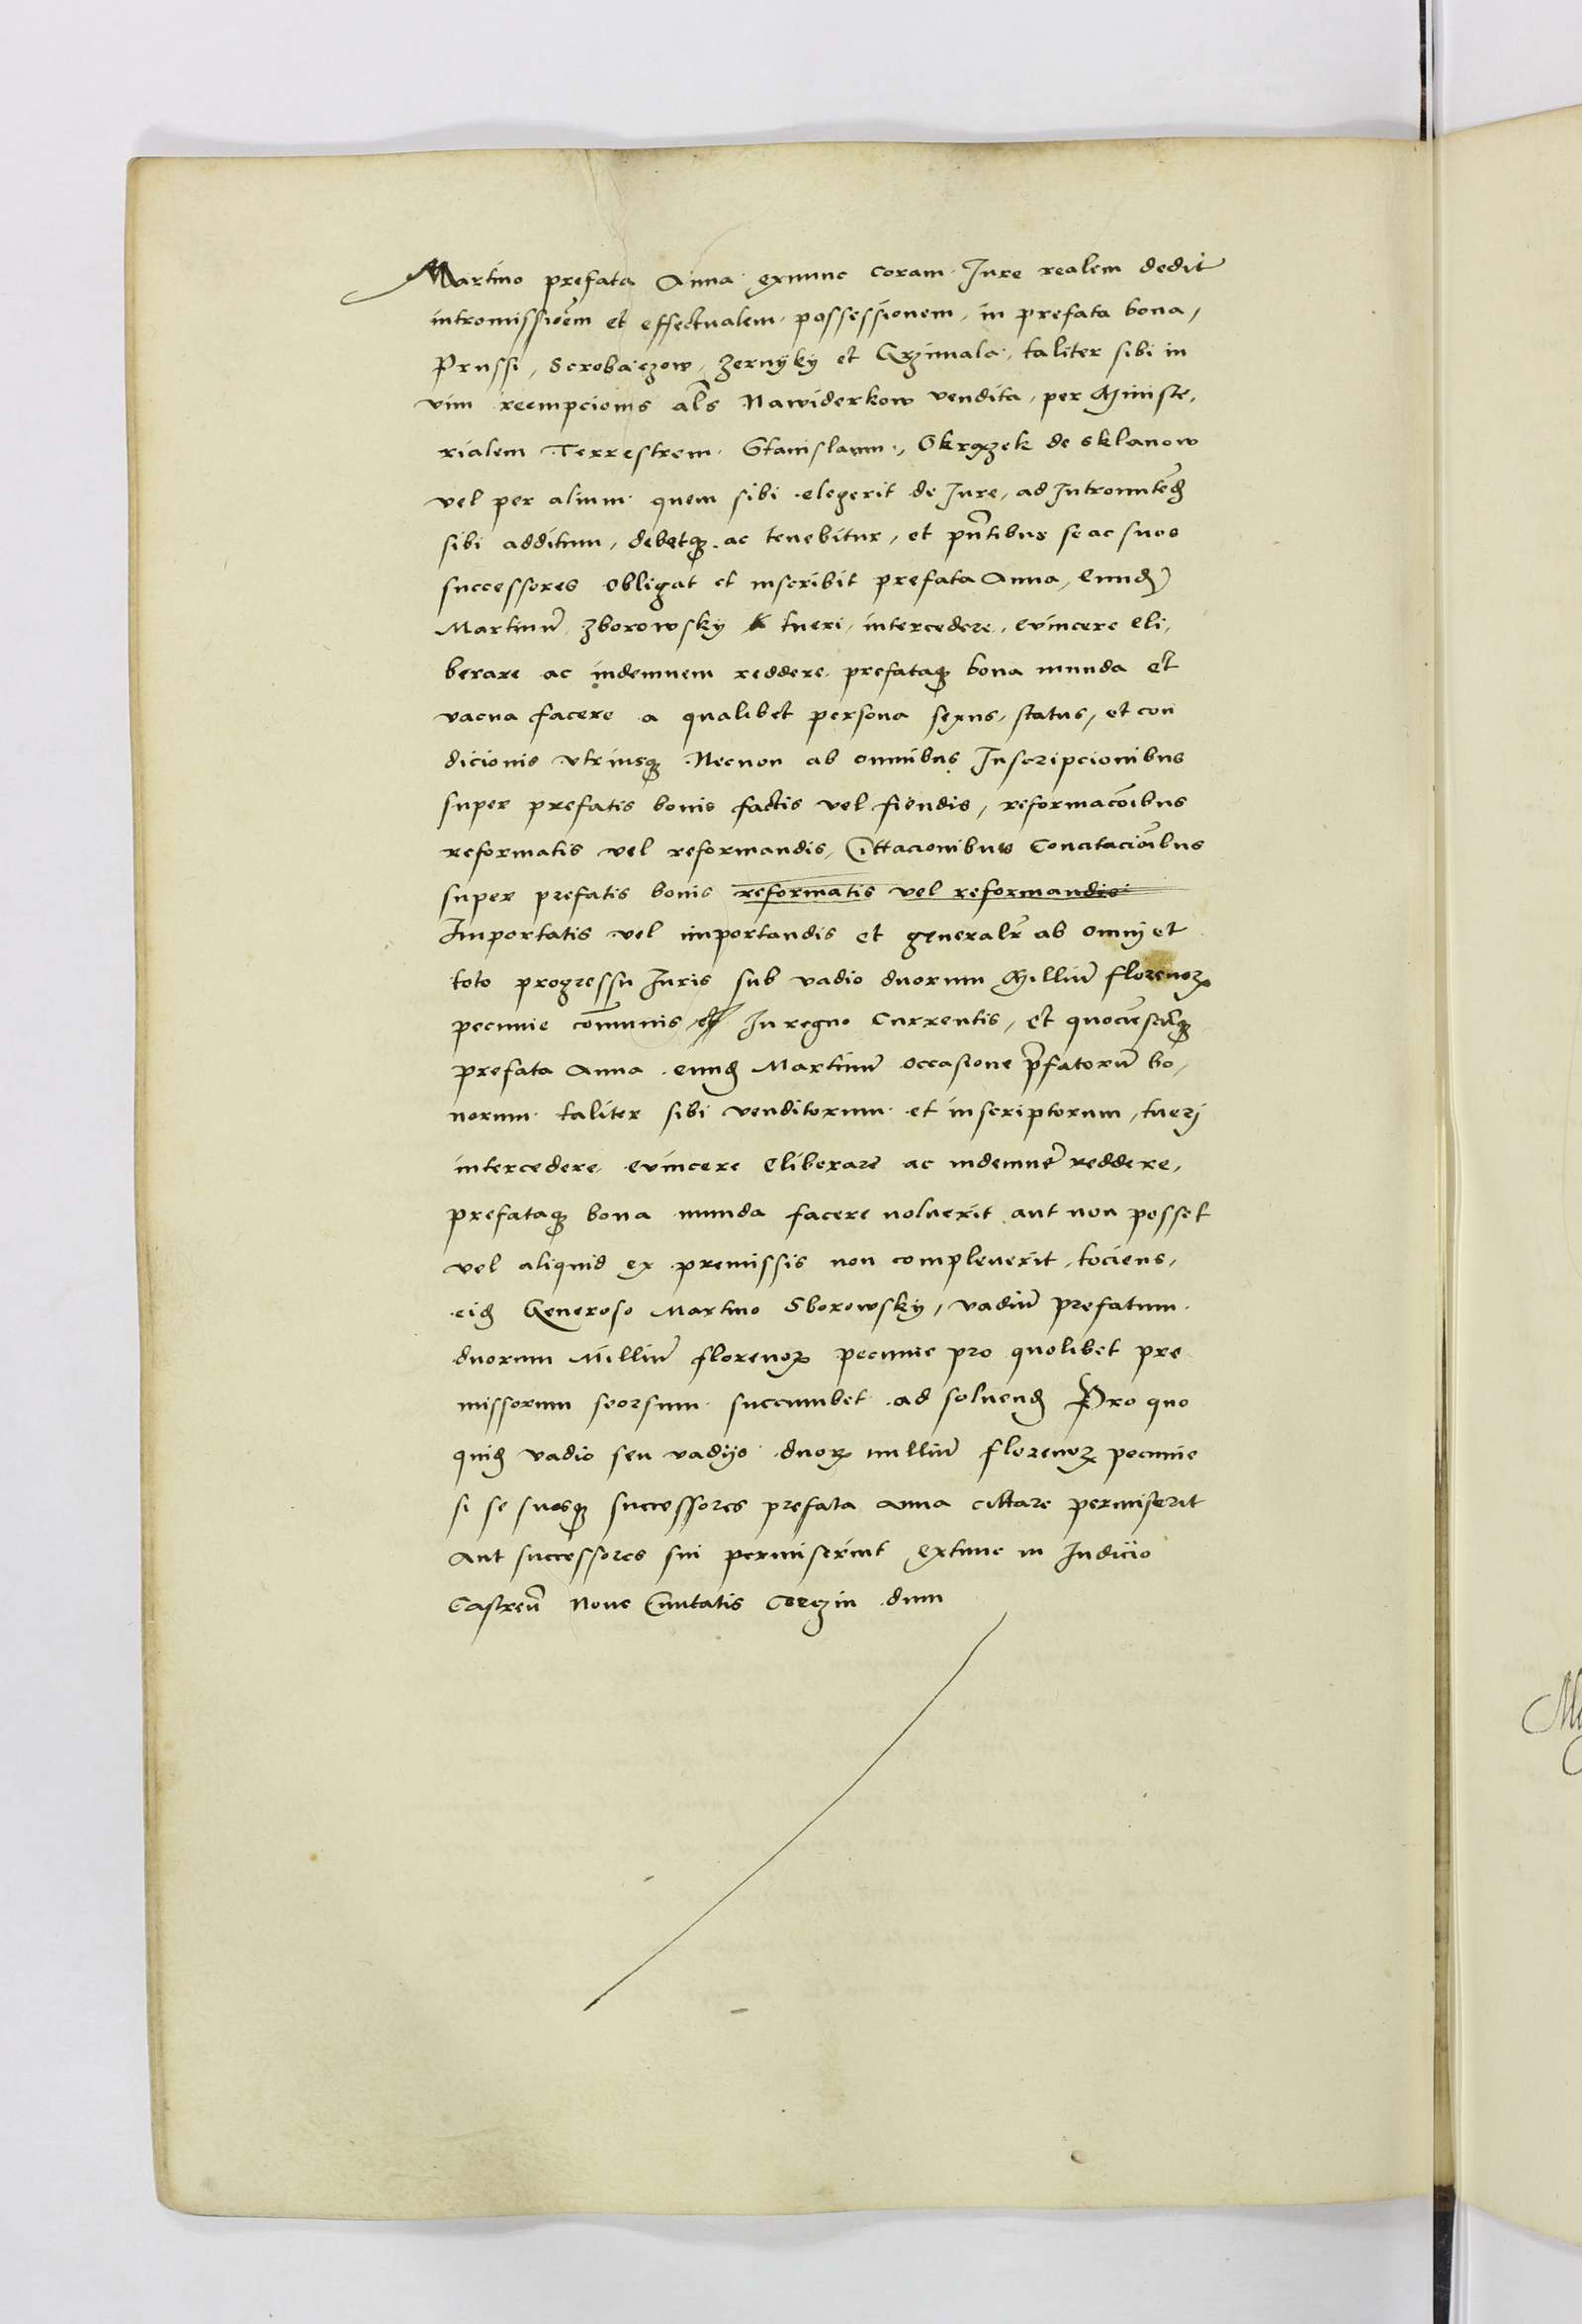 Martino prefata Anna exnunc coram Jure realem dedit
intromissioēm et effectualem possessionem in prefata bona,
Prussi, Scrobaczow, Zernyky et Grzimala, taliter sibi in
vim reempcionis als̄ Nawiderkow vendita, per Ministe,
rialem Terrestrem Stanislaum, Okrzzek de Sklanow
vel per alium quem sibi elegerit de Jure, ad Intromitēdꝫ
sibi additum, debetqꝫ ac tenebitur, et pn̄tibus se ac suos
successores obligat et inscribit prefata Anna, eundꝫ
Martinū Zborowsky tueri, intercedere, evincere eli,
berare ac indemnem reddere prefataqꝫ bona munda et
vacua facere a qualibet persona sexus, status, et con
dicionis vtriusqꝫ Necnon ab omnibus Inscripcionibus
super prefatis bonis factis vel fiendis, reformacōibus
reformatis vel reformandis, Cittacionibus Concitaciōibus
super prefatis bonis reformatis vel reformandis
Importatis vel importandis et generalr̄ ab omnj et
toto progressu Juris sub vadio duorum Milliū florenoꝝ
pecunie com̄unis et In regno Currentis, et quociēscūqꝫ
prefata Anna eundꝫ Martinū occasione p̄fatorū bo,
norum taliter sibi venditorum et inscriptorum, tuerj
intercedere evincere eliberare ac indemnē reddere,
prefataqꝫ bona munda facere noluerit aut non posset
vel aliquid ex premissis non compleuerit, tociens,
eidꝫ Generoso Martino Sborowsky, vadiū prefatum
duorum Milliū florenoꝝ pecunie pro quolibet pre
missorum seorsum succumbet ad soluendꝫ Pro quo
quidꝫ vadio seu vadijs duoꝝ milliū florenoꝝ pecunie
si se suosqꝫ successores prefata Anna cittare permiserit
Aut successores sui permiserint extunc in Judicio
Castren̄ Noue Ciuitatis Corczin dum